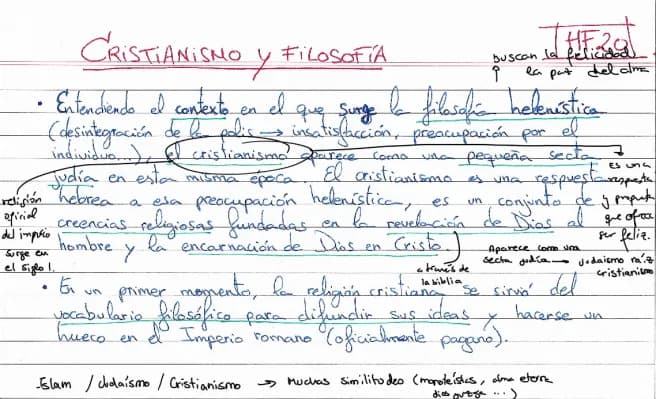 HF20
CRISTIANISMO Y FILOSOFÍA
buscan la felicidad
la paz del alma
• Entendiendo el contexto en el que surge la filosofía helenística
(desintegración de la polis → insatisfacción, preocupación por el
individuo...), el cristianismo aparece como una pequeña secta
judía en esta misma época. El cristianismo es una respuesta
hebrea a esa preocupación helenística, es un conjunto de
creencias religiosas fundadas en la revelación de Dios al
hombre y la encarnación de Dios en Cristo.
religión
oficial
del imperio
surge en
el siglo I.
es una
respuesta
y propuesta
que ofrece
ser feliz.
a través de
la biblia
Aparece como una
secta judía → judaísmo raíz
cristianismo
• En un primer momento, la religión cristiana se sirvió del
vocabulario filosófico para difundir sus ideas y hacerse un
hueco en el Imperio romano (oficialmente pagano).
Islam / Judaísmo / Cristianismo → Muchas similitudes (monoteístas, alma eterna
dios